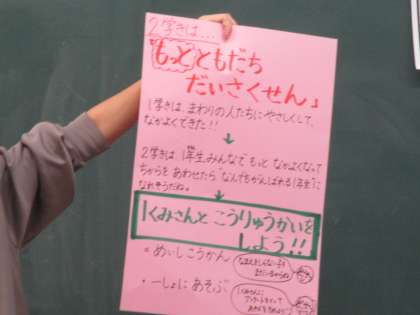 2学きは…
「もっとともだち
だいさくせん」
1学きは、まわりの人たちにやさしくして、
なかよくできた!!
2学きは、1年生みんなで もっと なかよくなって
ちからを あわせたら なんでもがんばれる1年生に
なれそうだね。
1くみさんと こうりゅうかいを
しよう!!
・めいしこうかん
・一しょに あそぶ